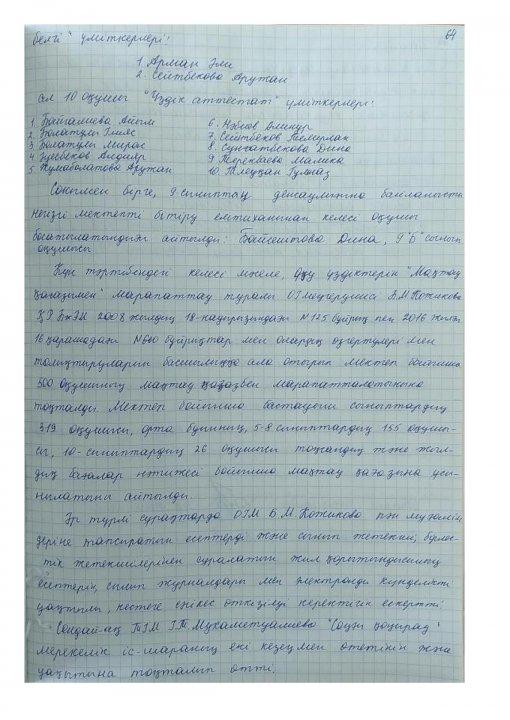 белгі" үміткерлері: 64
1. Арман Эли
2. Сейтбекова Аружан
ал 10 оқушы "Үздік аттестат" үміткерлері:
1. Байгалиева Айым 6.
2. Болатұлы 7. Сейтбеков Темирлан
3. Болатұлы Мирас 8. Сунгатбекова Дина
4. Алдияр 9. Теренбаева Малика
5. Жумаболатова Аружан 10. Тлеужан Гулназ
Сонымен бірге, 9 сыныптың денсаулығына байланысты
негізгі мектепті бітіру емтиханынан келесі оқушы
босатылатындығы айтылды: Байшештова Дина, 9 "Б" сынып
оқушысы
Күн тәртібіндегі келесі мәселе, оқу үздіктерін "Мақтау
қағазымен" марапаттау туралы ОІ меңгерушісі Б.М Кожикова
ҚР БжҒМ 2008 жылдың 18-наурызындағы N125 бұйрық пен 2016 жылғы
16 қарашадағы N660 бұйрықтар мен олардың өзгертулері мен
толықтыруларын басшылыққа ала отырып мектеп бойынша
500 оқушының мақтау қағазбен марапатталатынына
тоқталды. Мектеп бойынша бастауыш сыныптардың
319 оқушысы, орта буынның, 5-8 сыныптардың 155 оқушы-
сы, 10-сыныптардың 26 оқушысы тоқсандық және жыл-
дық бағалар нәтижесі бойынша мақтау қағазына ұсы-
нылатыны айтылды.
Әр түрлі сұрақтарда ОІМ Б.М Кожикова пән мұғалім
деріне тапсыратын есептерді және сынып жетекші, бірлес-
тік жетекшілерінен сұралатын жыл қорытындысының
есептерін, сынып журналдары мен электронды күнделікті
уақтылы, кестеге сәйкес өткізілуі керектігін ескертті
Сондай-ақ ТІМ Г.Т.Мухаметуалиева "Соңғы қоңырау"
мерекелік іс-шараның екі кезеңмен өтетінін және
уақытына тоқталып өтті.